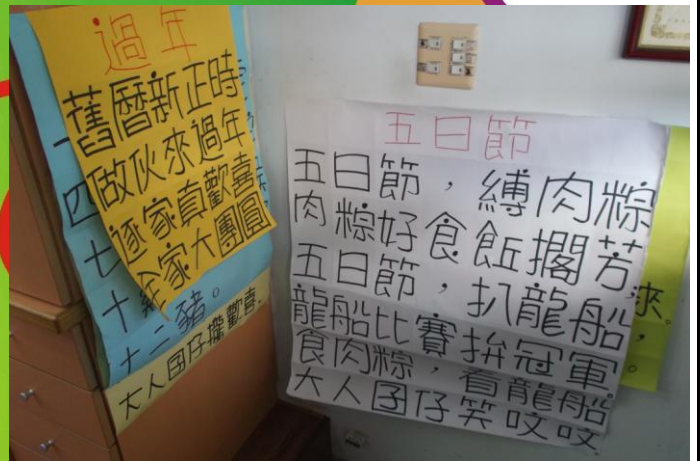 過年
舊曆新正時
做伙來過年
逐家真歡喜
全家大團圓
四
七
十
十二豬。
大人囝仔攏歡喜.
五日節
五日節，縛肉粽
肉粽好食飪擱芳
五日節，扒龍船
龍船比賽拚冠軍。
食肉粽，看龍船
大人囝仔笑咬咬.
來。